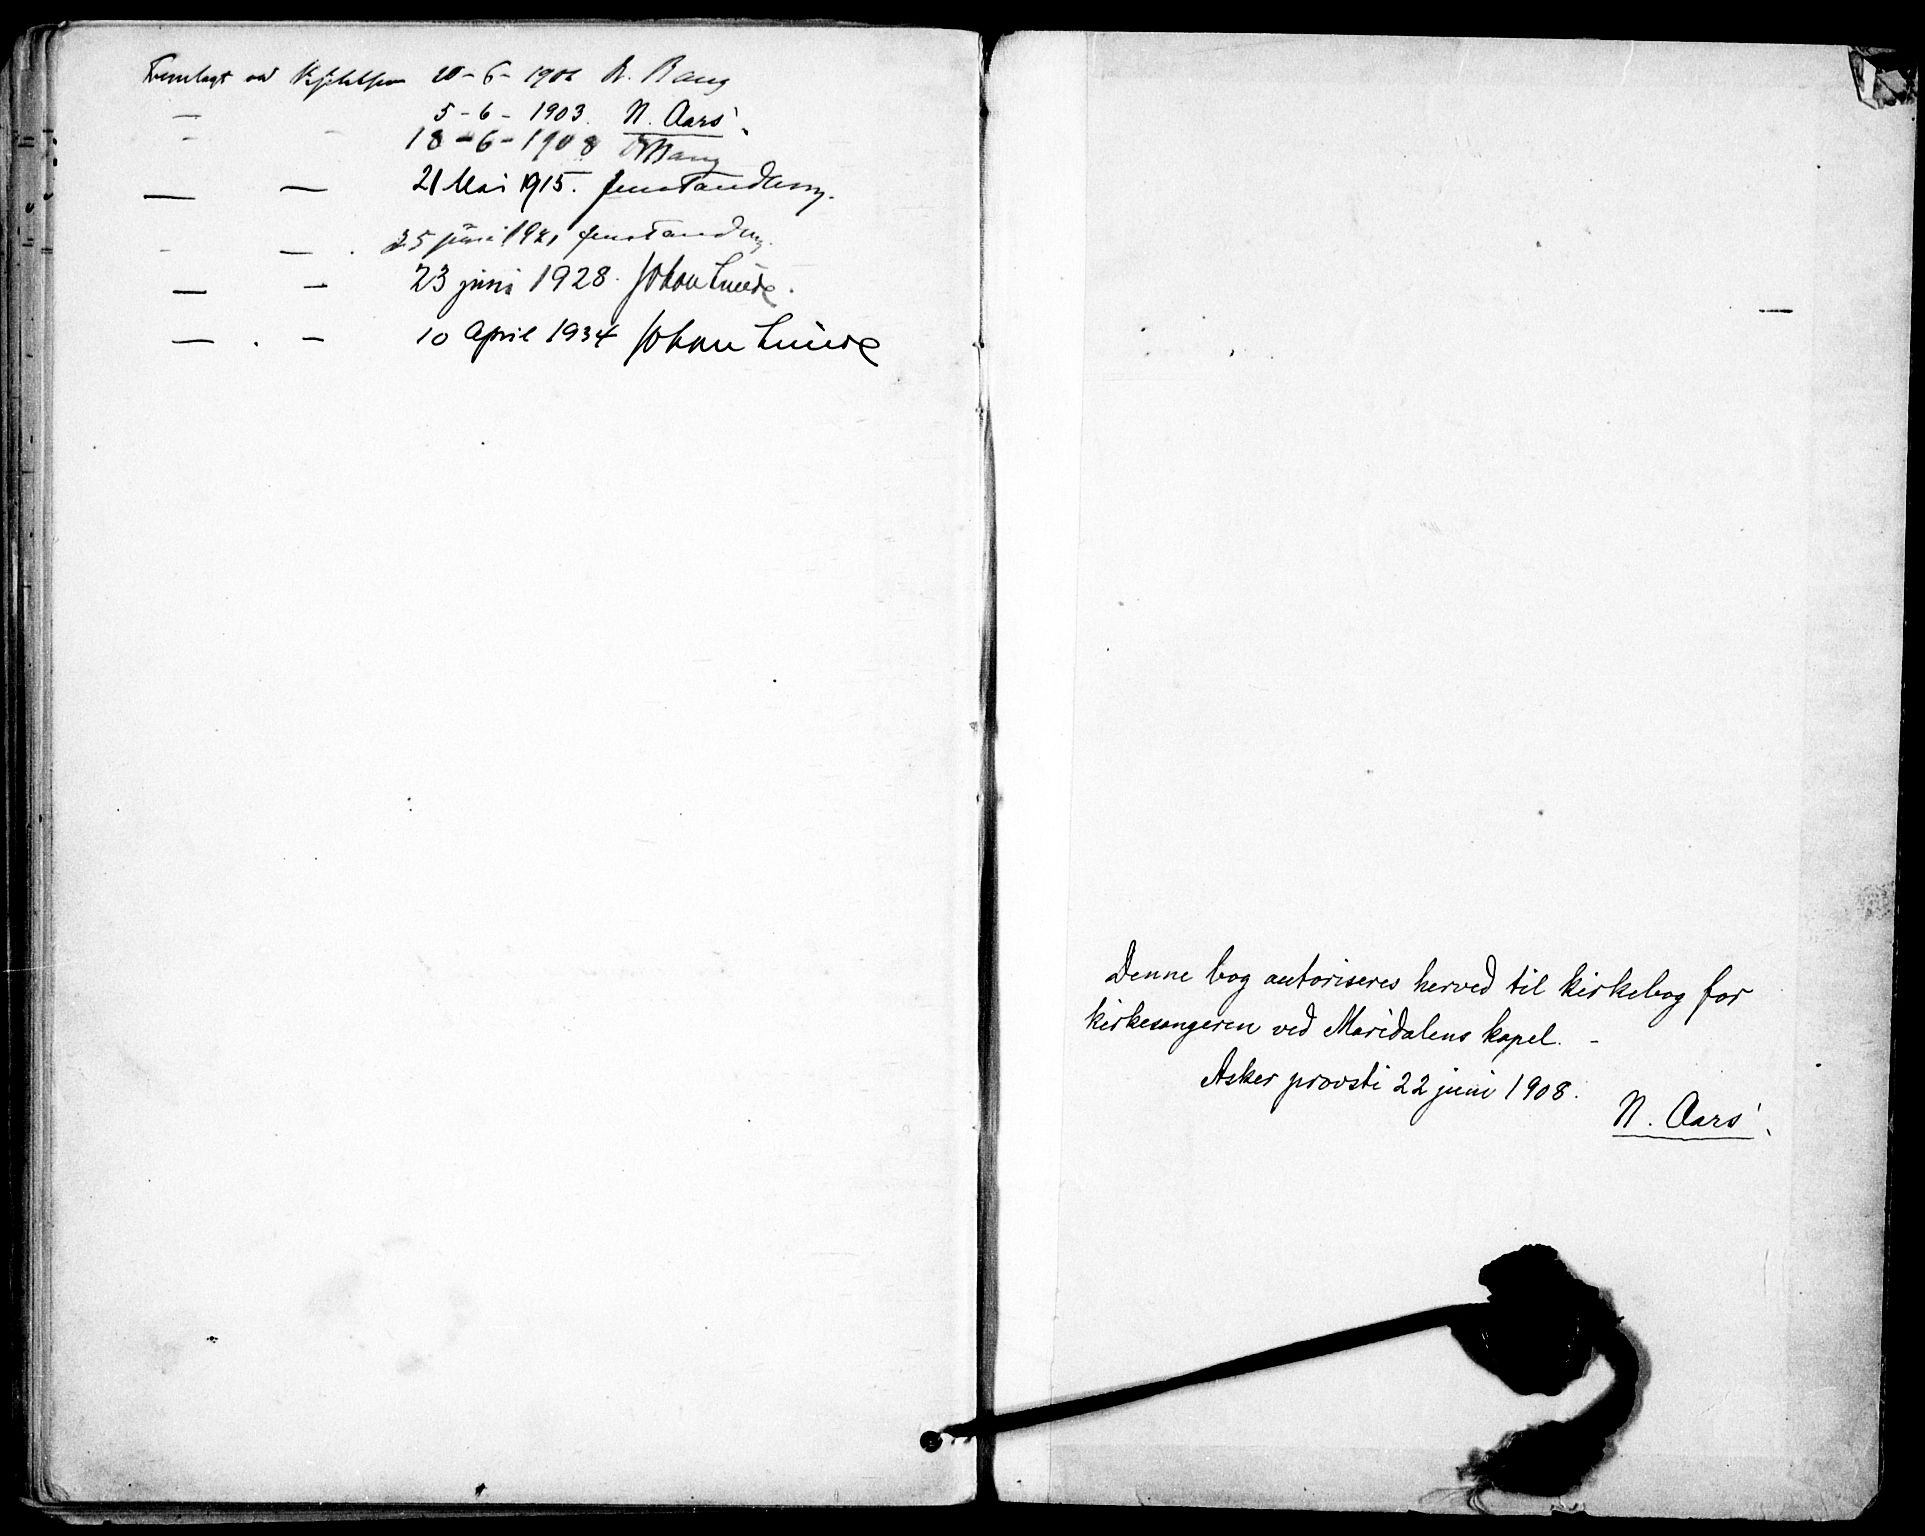 Fremlagt ved 20-6-190 Bang
— 5-6-1903. N. Aars
— 18-6-1908 Bang
— — 21 Mai 1915. Jens Tandberg.
— — . 25 juni 1921 Jens Tandberg.
— — 23 juni 1928. Johan Lunde.
— . — 10 April 1934 Johan Lunde
Denne bog autoriseres herved til kirkebog for
kirkesangeren ved Maridalens kapel. –
Asker provsti 22 juni 1908.
N. Aars